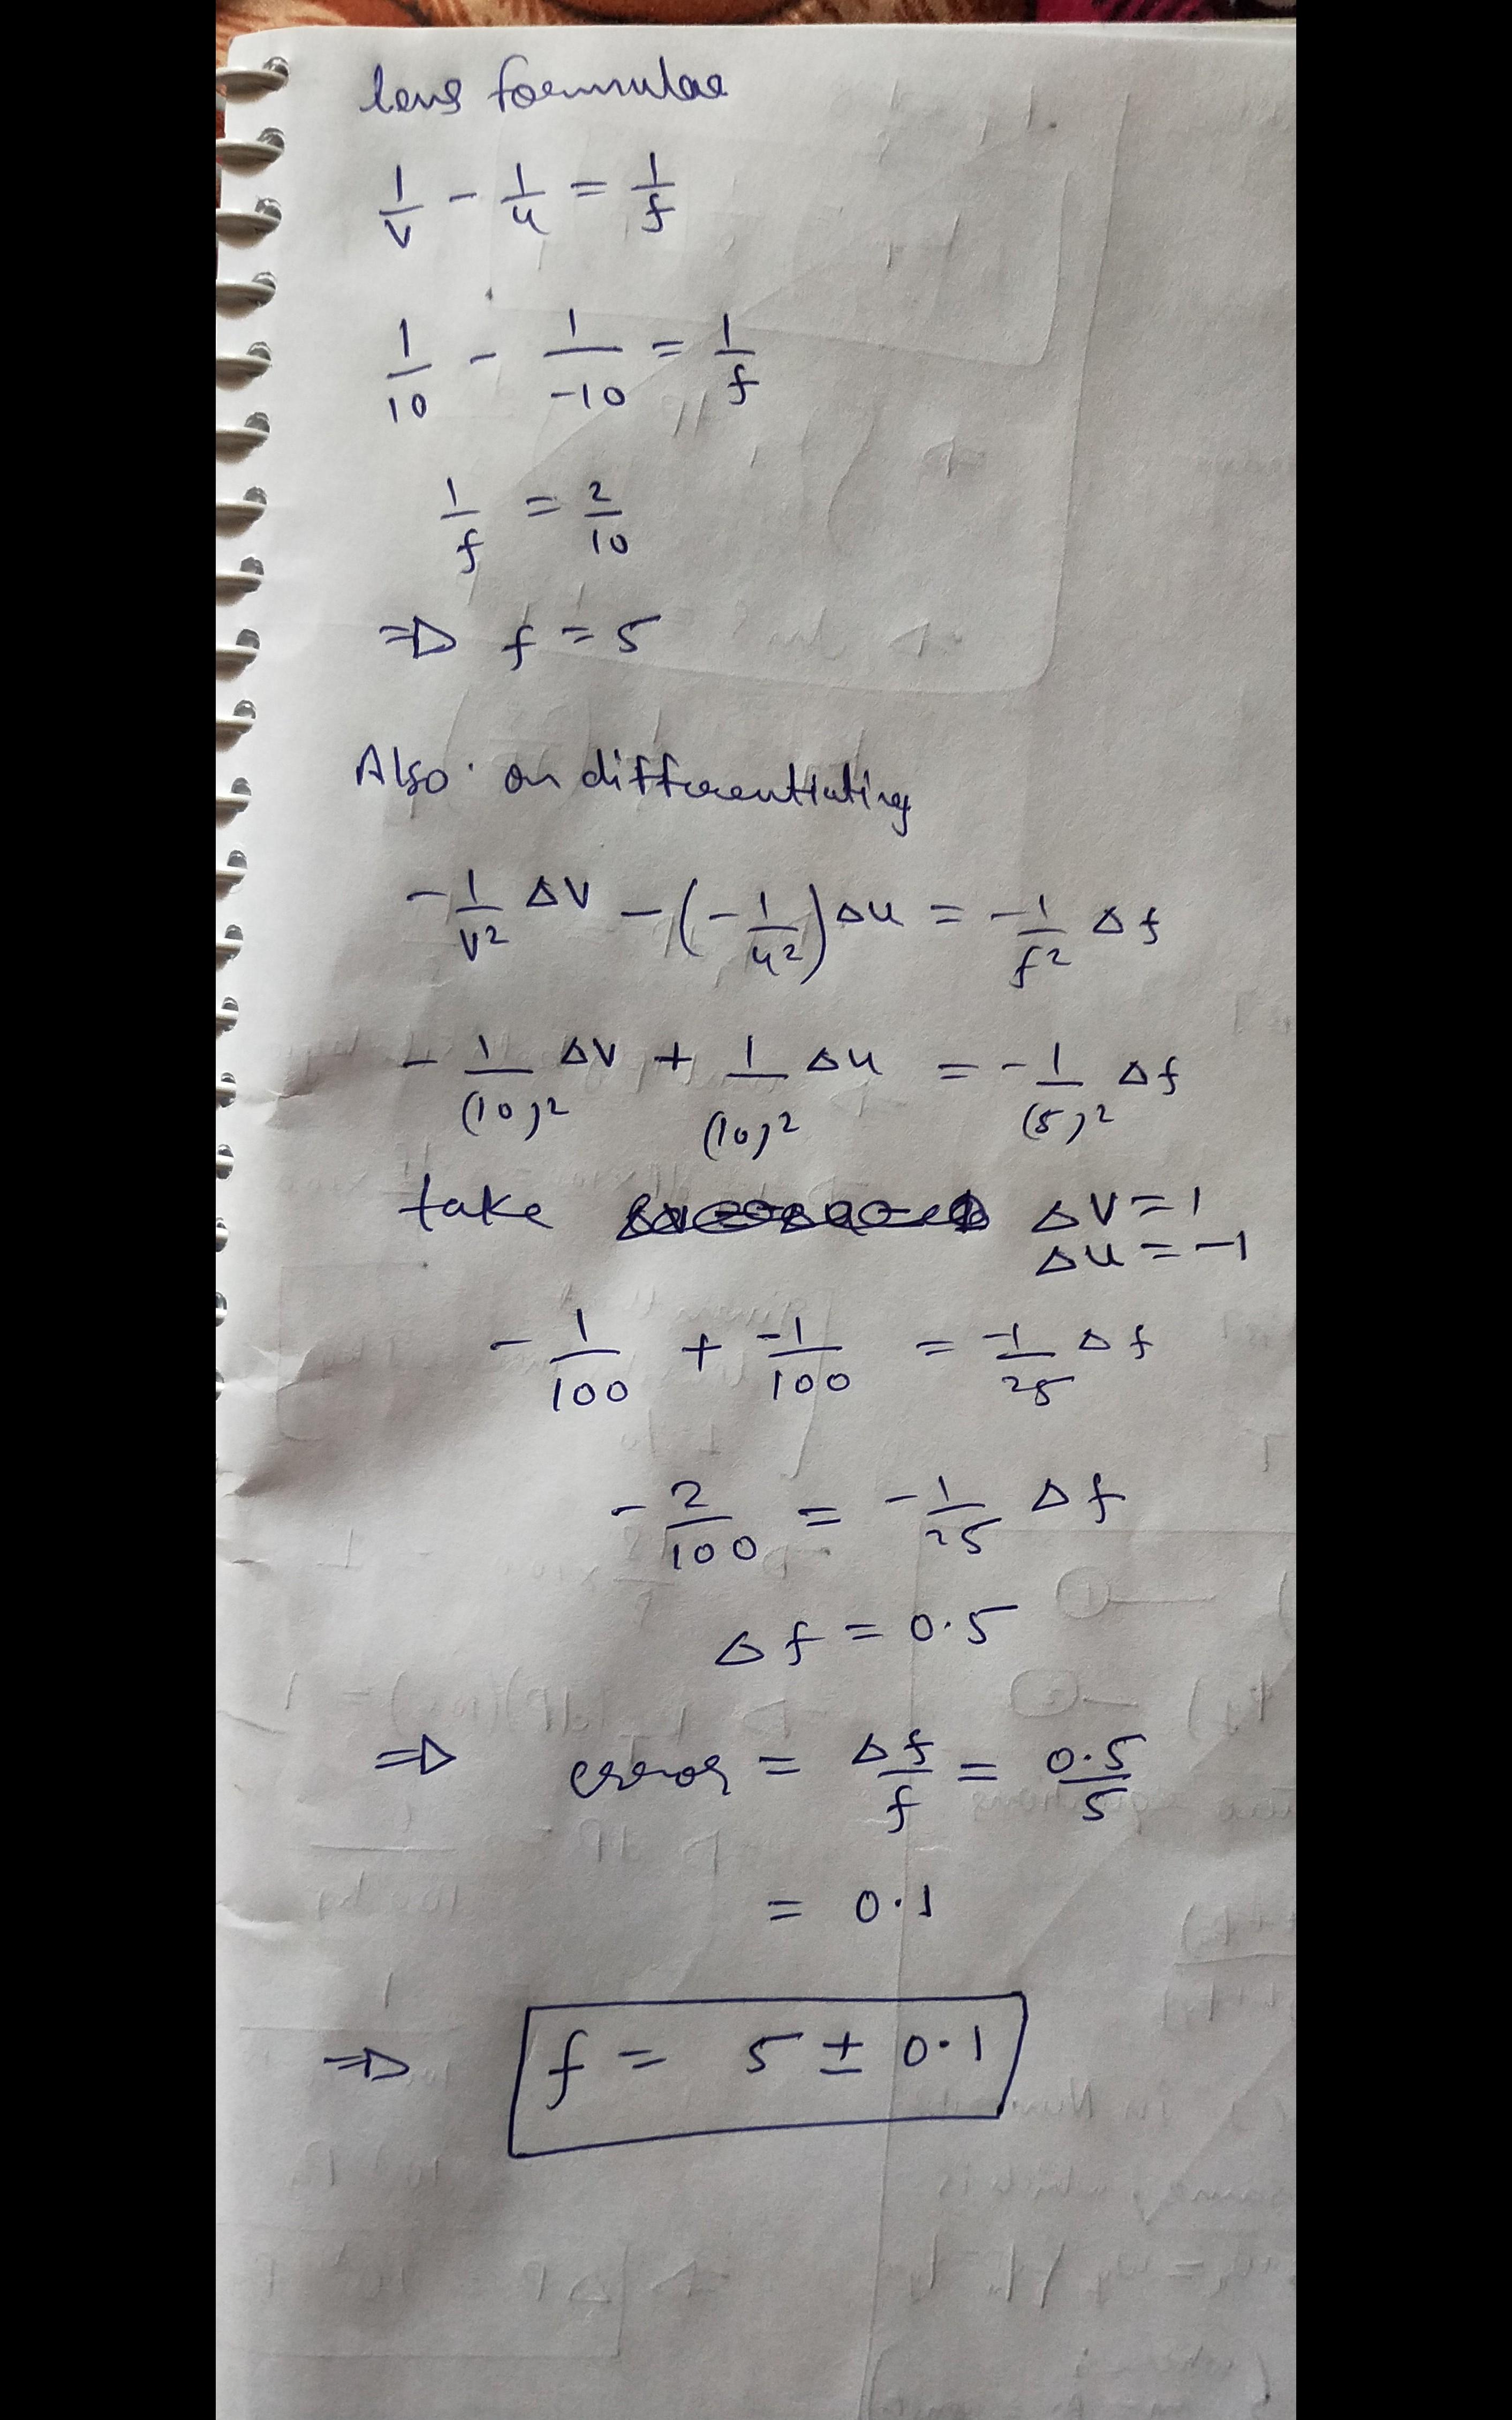 lens formulae
1/v - 1/u = 1/f
1/10 - 1/-10 = 1/f
1/f = 2/10
⇒ f = 5
Also on differentiating
-1/v² ΔV - (-1/u²) Δu = -1/f² Δf
-1/(10)² ΔV + 1/(10)² Δu = -1/(5)² Δf
take ΔV = 1
Δu = -1
-1/100 + -1/100 = -1/25 Δf
-2/100 = -1/25 Δf
Δf = 0.5
⇒ error = Δf/f = 0.5/5
= 0.1
⇒ f = 5 ± 0.1